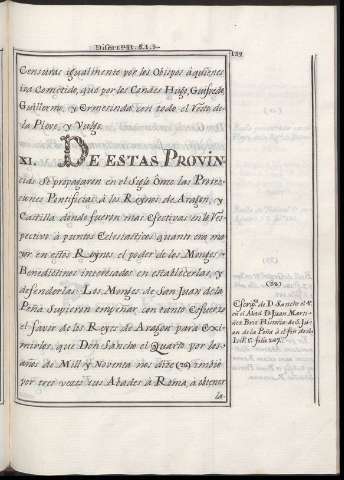 122
Censuras igualmente por los Obispos á quienes
iva Cometido, que por los Condes Hugo, Guifredo
Guillermo, y Ermesinda con todo el Resto de
la Pleve, y Vulgo.
XI. DE ESTAS PROVIN-
cias se propagaron en el Siglo Onze las Protec-
ciones Pontificias á los Reynos de Aragon, y
Castilla donde fueron mas efectivas en lo Res-
pectivo á puntos Eclesiasticos quanto era ma-
yor en estos Reynos el poder de los Monges
Benedictinos interesados en establecerlas, y
defenderlas. Los Monges de San Juan de la
Peña Supieron empeñar con tanto Esfuerzo
el favor de los Reys de Aragon para Exi-
mirse, que Don Sancho el Quarto por los
años de Mill y Noventa nos dize embió
por tres veces sus Abades á Roma, á obtener
la
Escrip.ª de D. Sancho el 4º
en el Abad D. Juan Marti-
nez Briz Historia de S. Jua
de la Peña
folio 207.